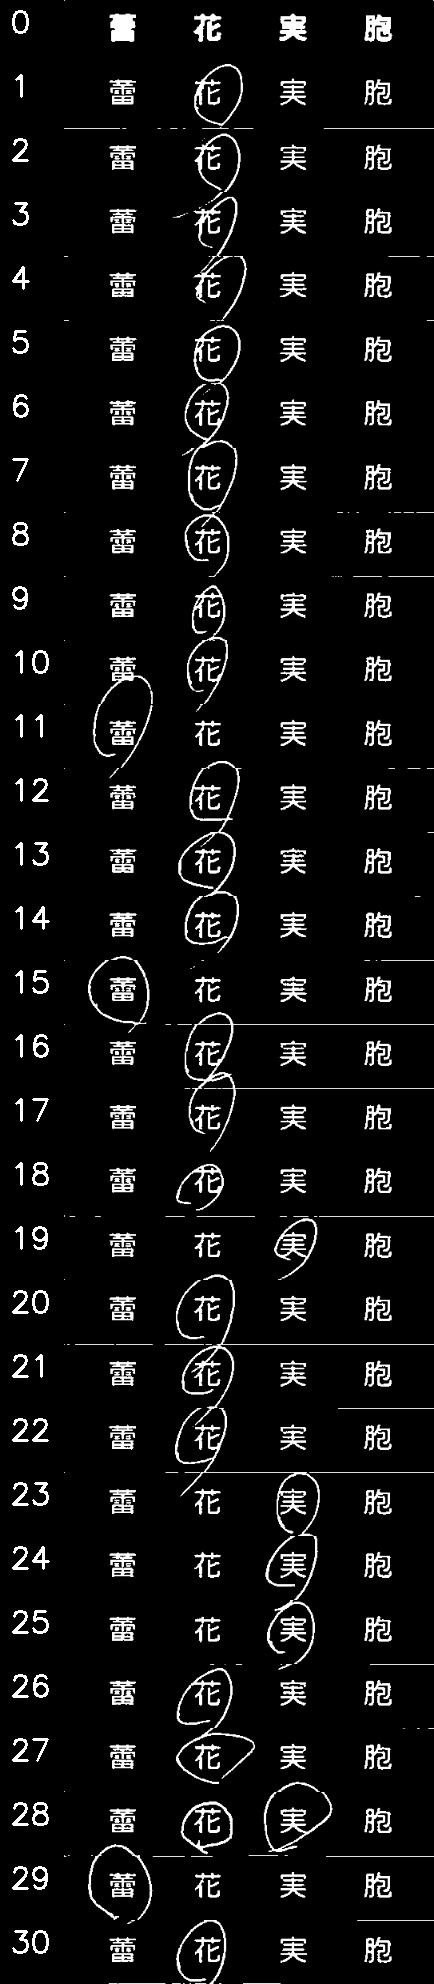 0 蕾 花 実 胞
1 蕾 花 実 胞
2 蕾 花 実 胞
3 蕾 花 実 胞
4 蕾 花 実 胞
5 蕾 花 実 胞
6 蕾 花 実 胞
7 蕾 花 実 胞
8 蕾 花 実 胞
9 蕾 花 実 胞
10 蕾 花 実 胞
11 蕾 花 実 胞
12 蕾 花 実 胞
13 蕾 花 実 胞
14 蕾 花 実 胞
15 蕾 花 実 胞
16 蕾 花 実 胞
17 蕾 花 実 胞
18 蕾 花 実 胞
19 蕾 花 実 胞
20 蕾 花 実 胞
21 蕾 花 実 胞
22 蕾 花 実 胞
23 蕾 花 実 胞
24 蕾 花 実 胞
25 蕾 花 実 胞
26 蕾 花 実 胞
27 蕾 花 実 胞
28 蕾 花 実 胞
29 蕾 花 実 胞
30 蕾 花 実 胞